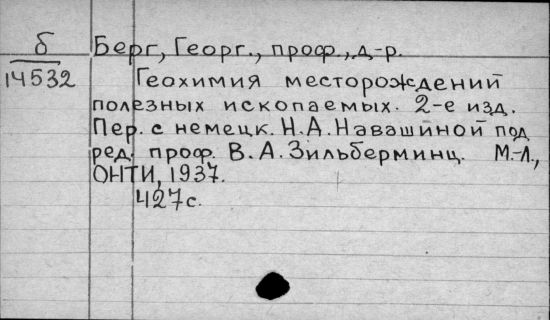 б Берг, Георг., проф., д-р.
14532 Геохимия месторождений
полезных ископаемых. 2-е изд.
Пер. с немецк. Н.А. Навашиной под
ред. проф. В.А. Зильберминц. М.-Л.,
ОНТИ, 1937.
427 с.